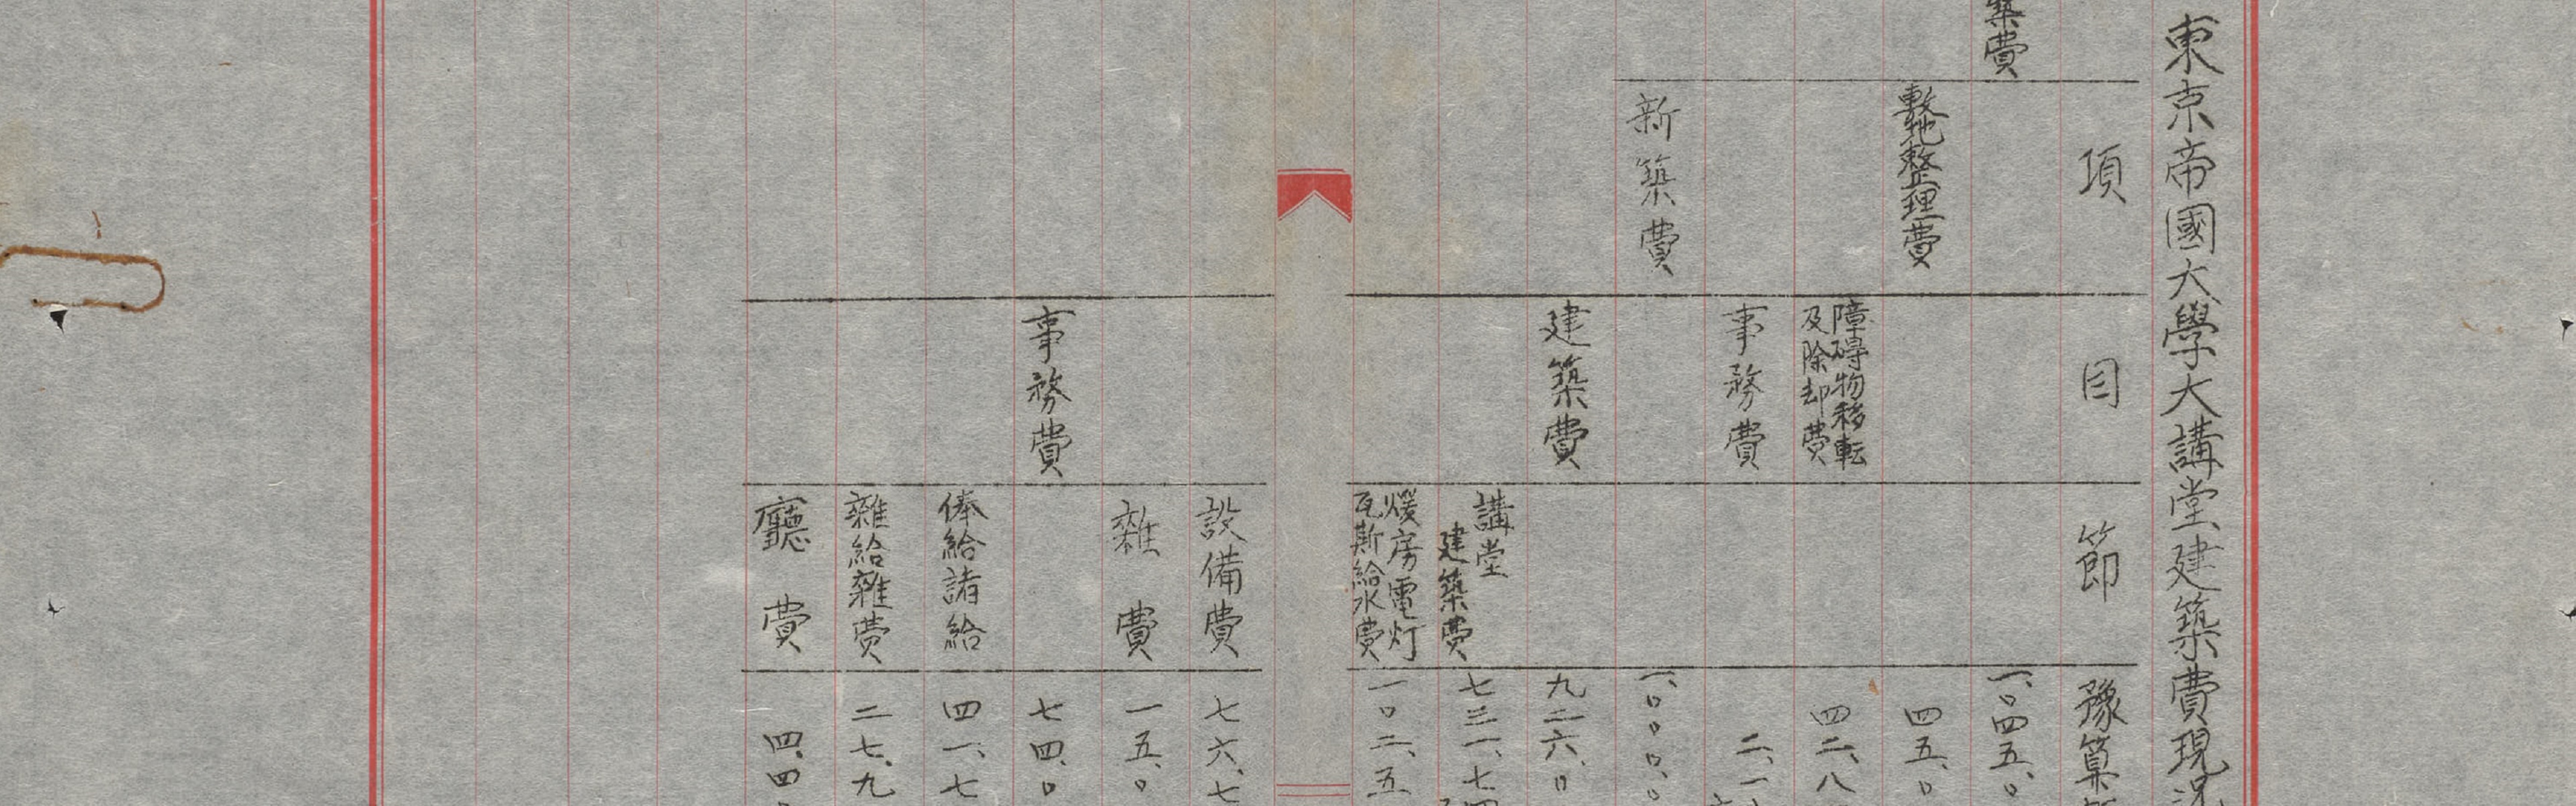 東京帝國大學大講堂建築費現況
項 目 節 豫算
築費 一、〇四五、〇
敷地整理費 四五、〇
障碍物移転及除却費 四二、八
事務費 二、一
新築費 一、〇〇〇、〇
建築費 九二六、〇
講堂建築費 七三一、七
煖房電灯瓦斯給水費 一〇二、五
設備費 七六、七
雜費 一五、〇
事務費 七四、〇
俸給諸給 四一、七
雜給雜費 二七、九
廳費 四、四